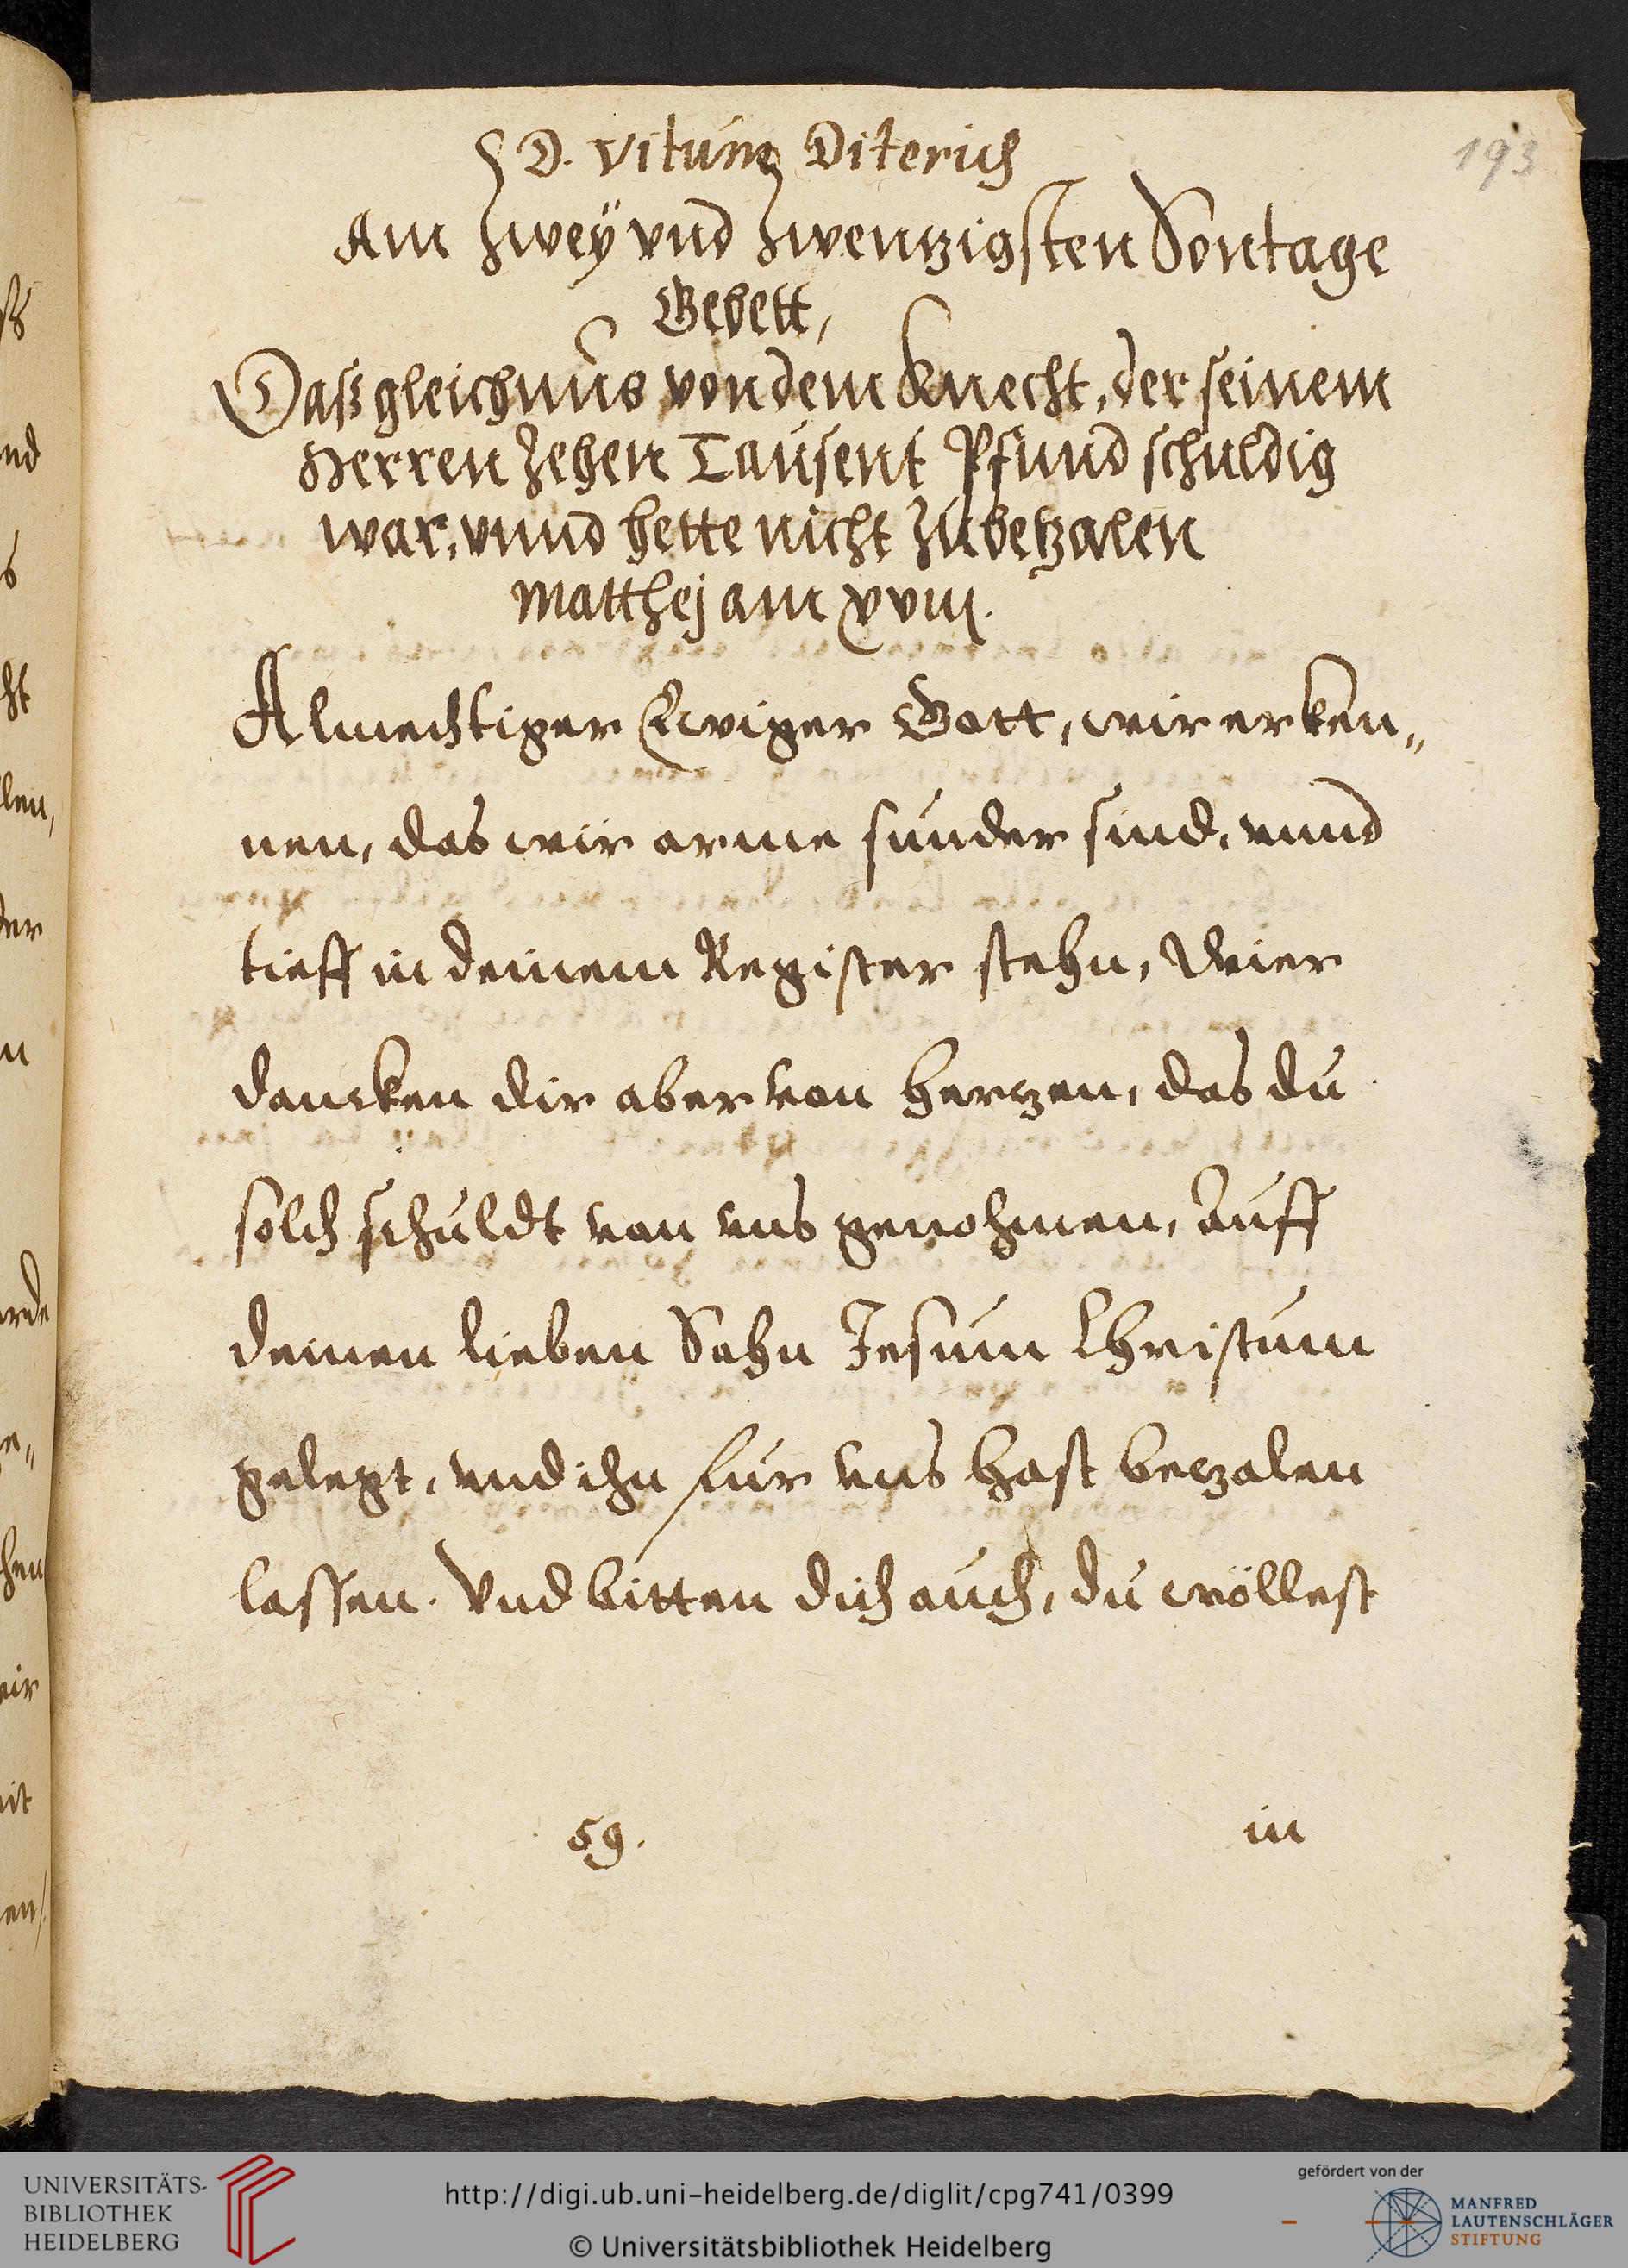 D. Vitum Diterich
193
Am zweÿ vnd zwentzigsten Sontage
Gebett,
Dasz gleichnus von dem Knecht, der seinem
Herren zehen Tausent Pfund schuldig
war, vnnd hette nicht zubetzalen
Matthej am xviij.
Almechtiger Ewiger Gott, wir erken„
nen, das wir arme sunder sind, vnnd
tieff in deinem Register stehn, Wier
dancken dir aber von hertzen, das du
solch schuldt von vns genohmen, Auff
deinen lieben Sohn Jesum Christum
gelegt, vnd ihn fur vns hast betzalen
lassen. Vnd bitten dich auch, du wöllest
59.
in
UNIVERSITÄTS-
BIBLIOTHEK
HEIDELBERG
http://digi.ub.uni-heidelberg.de/diglit/cpg741/0399
© Universitätsbibliothek Heidelberg
gefördert von der
MANFRED
LAUTENSCHLÄGER
STIFTUNG